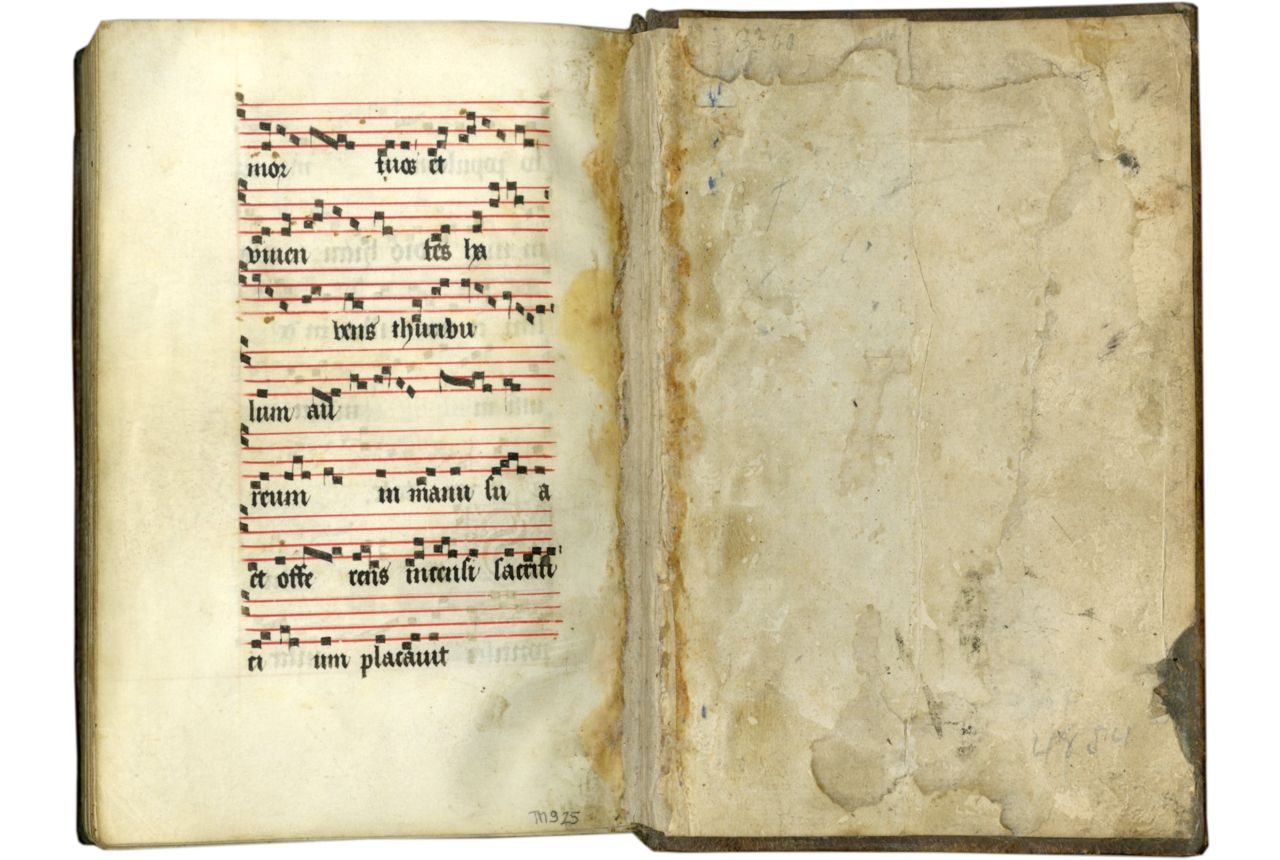 mor tuos et
viuen tes ha
bens thuribu
lum au
reum in manu su a
et offe rens incensi sacrifi
ci um placauit
TM925
3300
4854